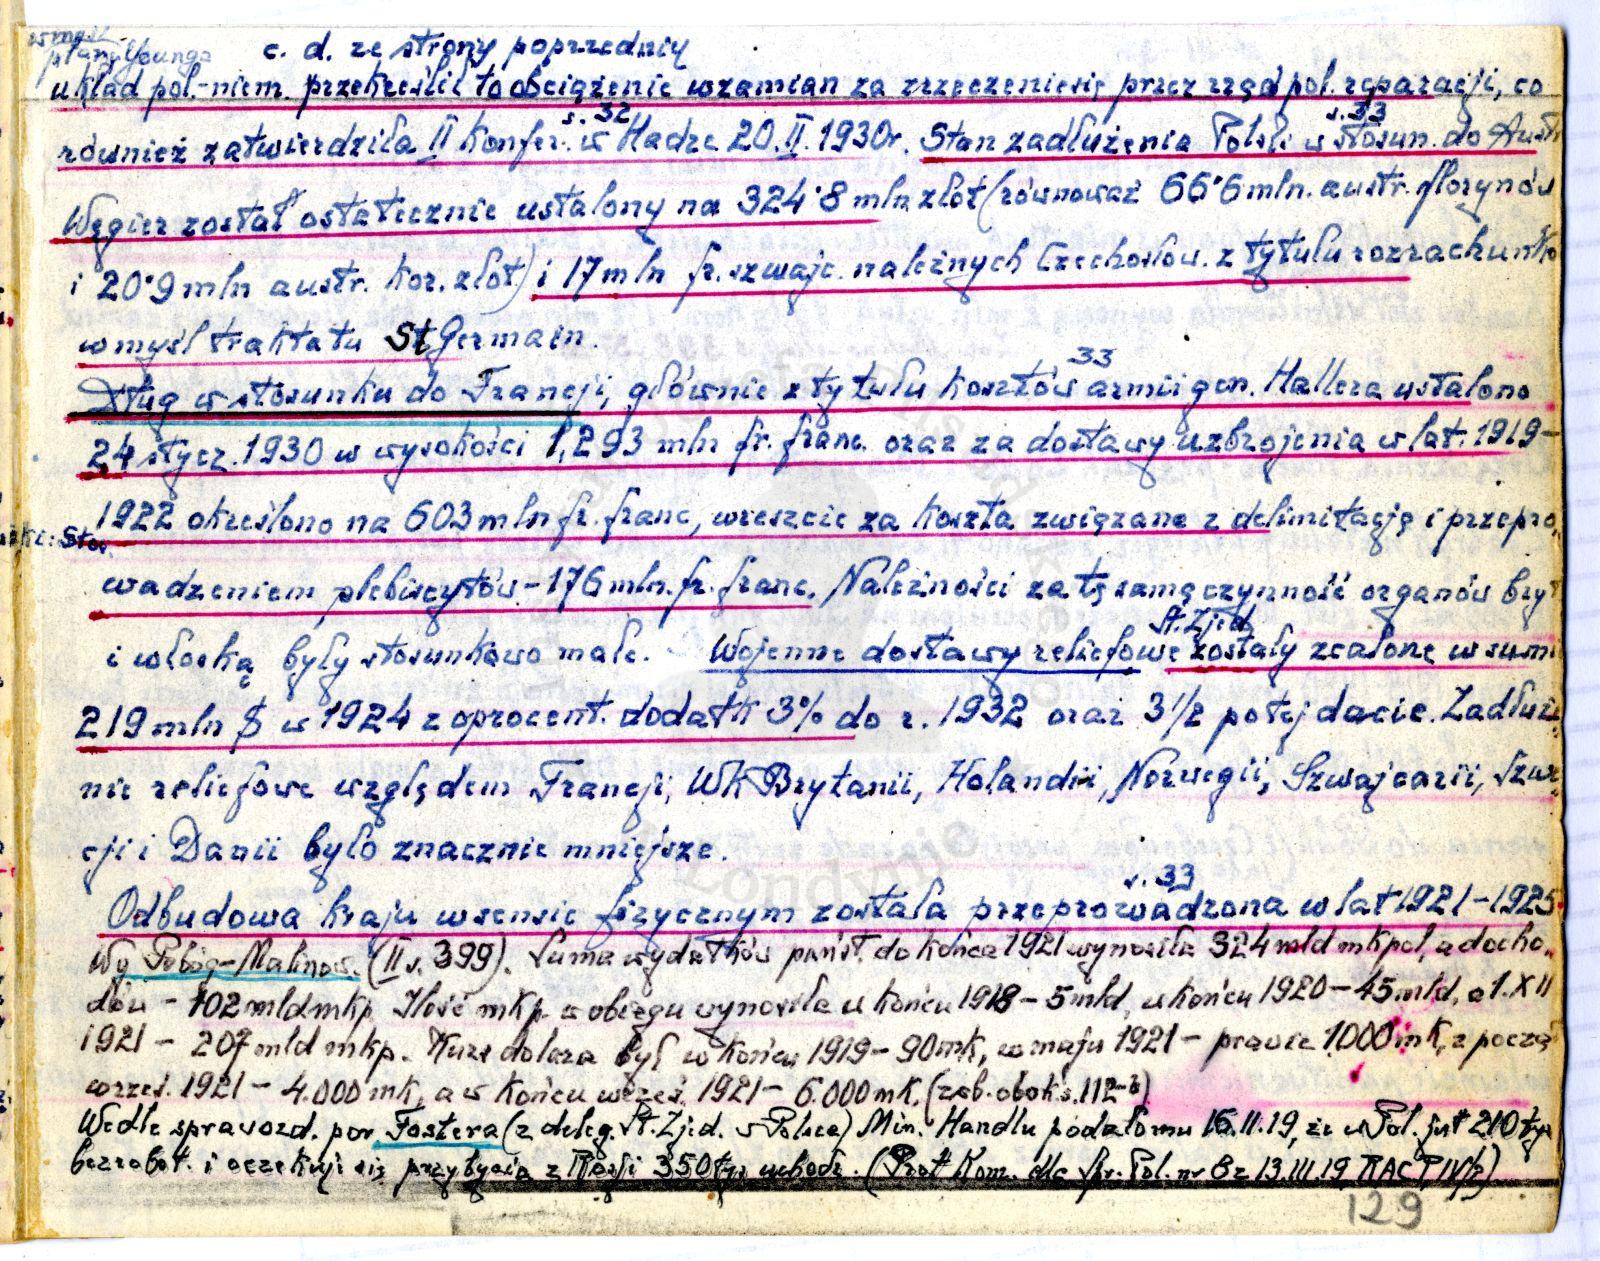 w myśl
planu Younga c. d. ze strony poprzedniej
układ pol.-niem. przekreślił to obciążenie wzamian za zrzeczenie się przez rząd pol. reparacji, co
s. 32 s. 33
również zatwierdziła II Konfer. w Hadze 20.II.1930r. Stan zadłużenia Polski w stosun. do Austr
Węgier został ostatecznie ustalony na 324·8 mln złot (równoważ 66·6 mln. austr. florynów
i 20·9 mln austr. kor. złot) i 17 mln fr. szwajc. należnych Czechosłow. z tytułu rozrachunko
w myśl traktatu St Germain.
33
Dług w stosunku do Francji, głównie z tytułu kosztów armii gen. Hallera ustalono
24 stycz. 1930 w wysokości 1,293 mln fr. franc. oraz za dostawy uzbrojenia w lat. 1919-
1922 określono na 603 mln fr. franc, wreszcie za koszta związane z delimitacją i przepro,
wadzeniem plebiscytów - 176 mln. fr. franc. Należności za tę samą czynność organów bryt
St. Zjedn
i włoską były stosunkowo małe. Wojenne dostawy reliefowe zostały zcalone w sumi
219 mln $ w 1924 z oprocent. dodatk 3% do r. 1932 oraz 3 1/2 po tej dacie. Zadłuże,
nie reliefowe względem Francji, Wk Brytanii, Holandii, Norwegii, Szwajcarii, Szwe,
cji i Danii było znacznie mniejsze.
s. 33
Odbudowa kraju w sensie fizycznym została przeprowadzona w lat 1921-1925
Wg Pobóg-Malinow. (II s. 399). Suma wydatków państ. do końca 1921 wynosiła 324 mld mk pol, a docho,
dów - 102 mld mkp. Ilość mkp. w obiegu wynosiła w końcu 1918 - 5 mld, w końcu 1920 - 45 mld, a 1.XII
1921 - 207 mld mkp. Kurs dolara był w końcu 1919 - 90 mk, w maju 1921 - prawie 1000 mk, z począ
wrześ. 1921 - 4.000 mk, a w końcu wrześ. 1921 - 6.000 mk. (zob. obok s. 112-3)
Wedle sprawozd. por. Fostera (z deleg. St. Zjed. w Polsce) Min. Handlu podało mu 16.II.19, że w Pol. jest 210 tys
bezrobot. i oczekuje się przybycia z Rosji 350 tys uchodź. (Prot Kom. dla Spr. Pol. nr 8 z 13.III.19 RAC P IV/2)
129